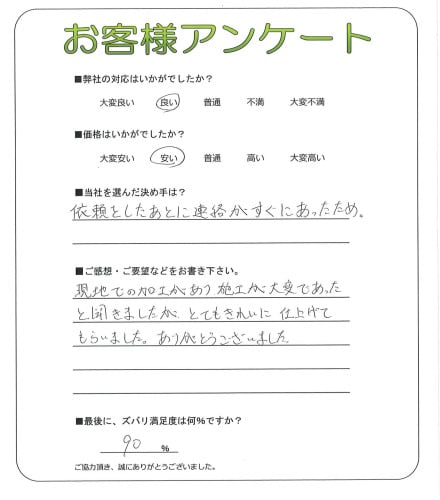 お客様アンケート
■弊社の対応はいかがでしたか？
大変良い 良い 普通 不満 大変不満
■価格はいかがでしたか？
大変安い 安い 普通 高い 大変高い
■当社を選んだ決め手は？
依頼をしたあとに連絡がすぐにあったため。
■ご感想・ご要望などをお書き下さい。
現地での加工があり施工が大変であった
と聞きましたが とてもきれいに 仕上げて
もらいました。ありがとうございました。
■最後に、ズバリ満足度は何％ですか？
90 ％
ご協力頂き、誠にありがとうございました。